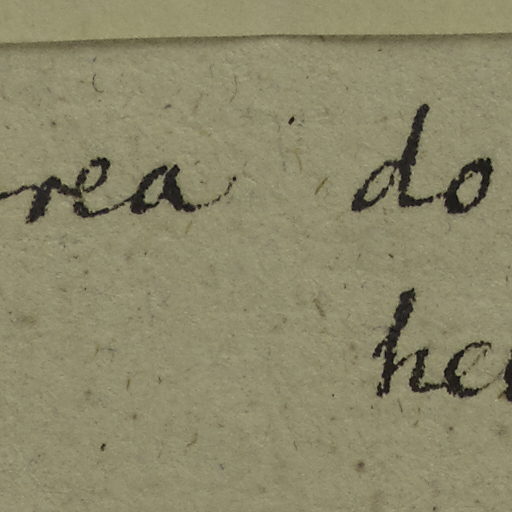 rea do
he